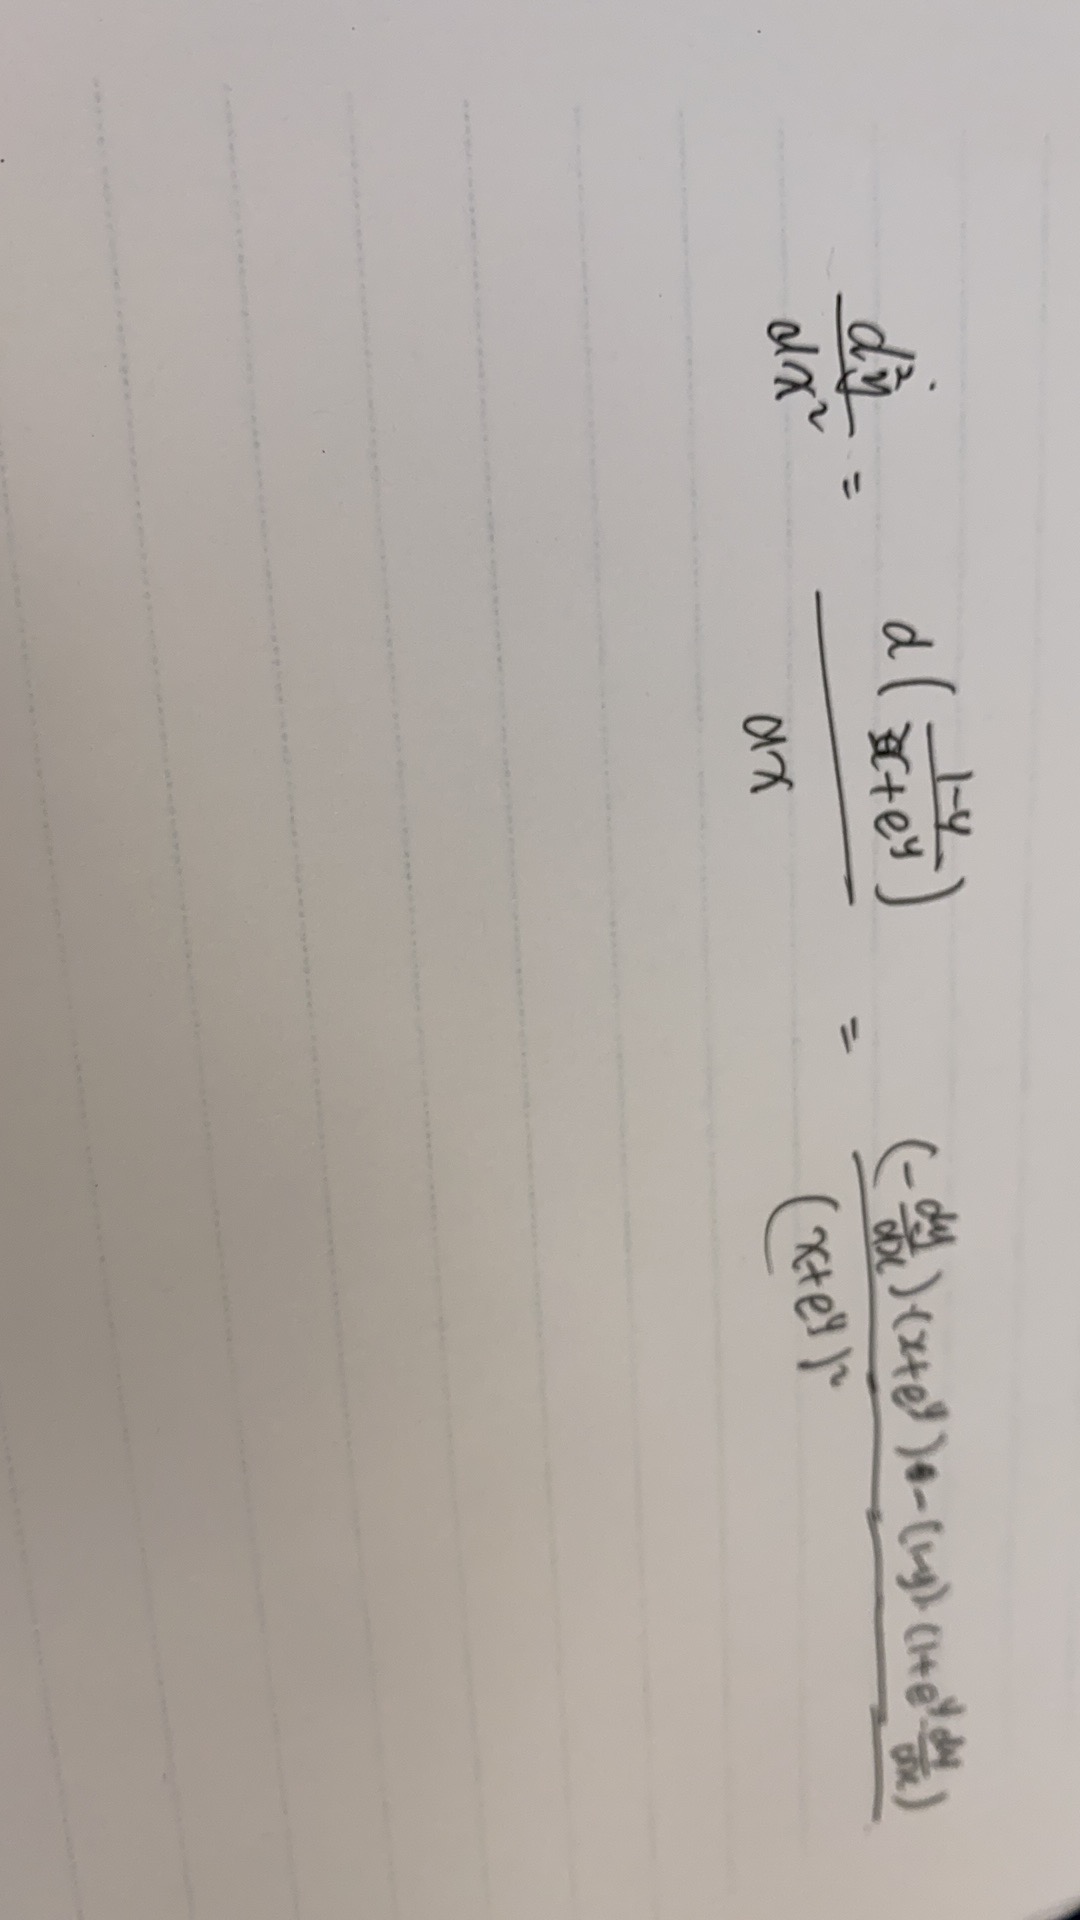 d²y/dx² = d((1-y)/(x+e^y))/dx = ((-dy/dx)·(x+e^y) - (1-y)·(1+e^y·dy/dx))/(x+e^y)²